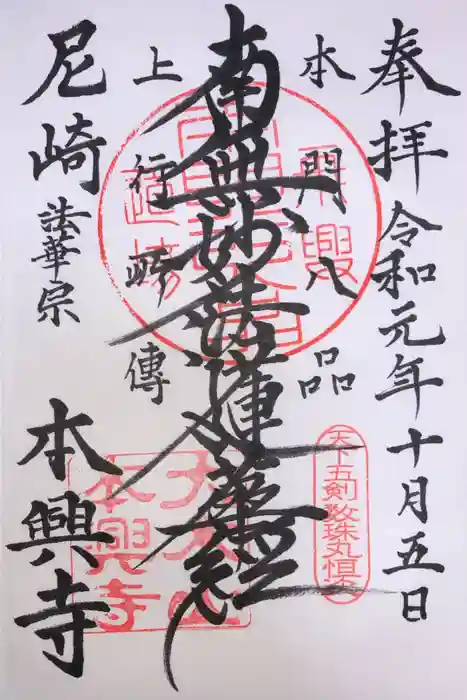 奉拝 令和元年十月五日
本門八品
南無妙法蓮華経
上行所傳
尼崎 法華宗 本興寺
天下五剣 数珠丸恒次
本興寺